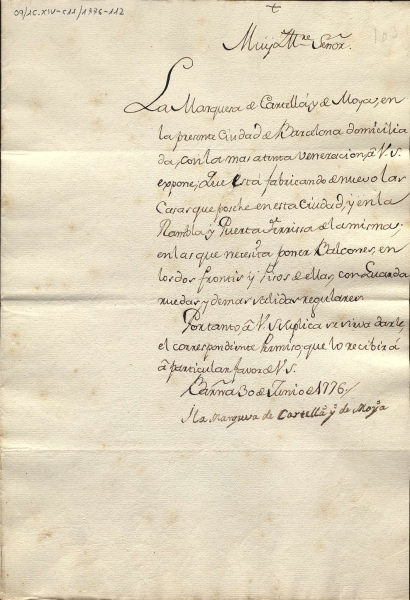 09/1C.XIV-C11/1776-112
Muy Ittre Señor.
La Marquesa de Cartellá, y de Moya, en
la presente Ciudad de Barcelona domicilia
da, con la mas atenta veneracion, â V.S.
expone, Que está fabricando de nuevo las
Casas que posehe en esta Ciudad, y en la
Rambla y Puerta Ferrissa de la misma;
en las que necesita poner Balcones, en
los dos frontis y Pisos de ellas, con Guarda
ruedas, y demas salidas regulares.
Por tanto â V.S. suplica se sirva darle,
el correspondiente Permiso, que lo recibirá
â particular favor de V.S.
Barna 30 de Junio de 1776/
La Marquesa de Cartellá y de Moya